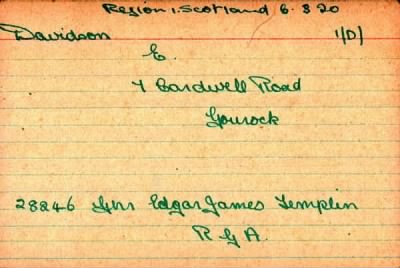 Region 1. Scotland 6. 3 20
Davidson 1/D/
E.
7 Cardwell Road
Gourock
28846 Gnr Edgar James Templin
R G A.